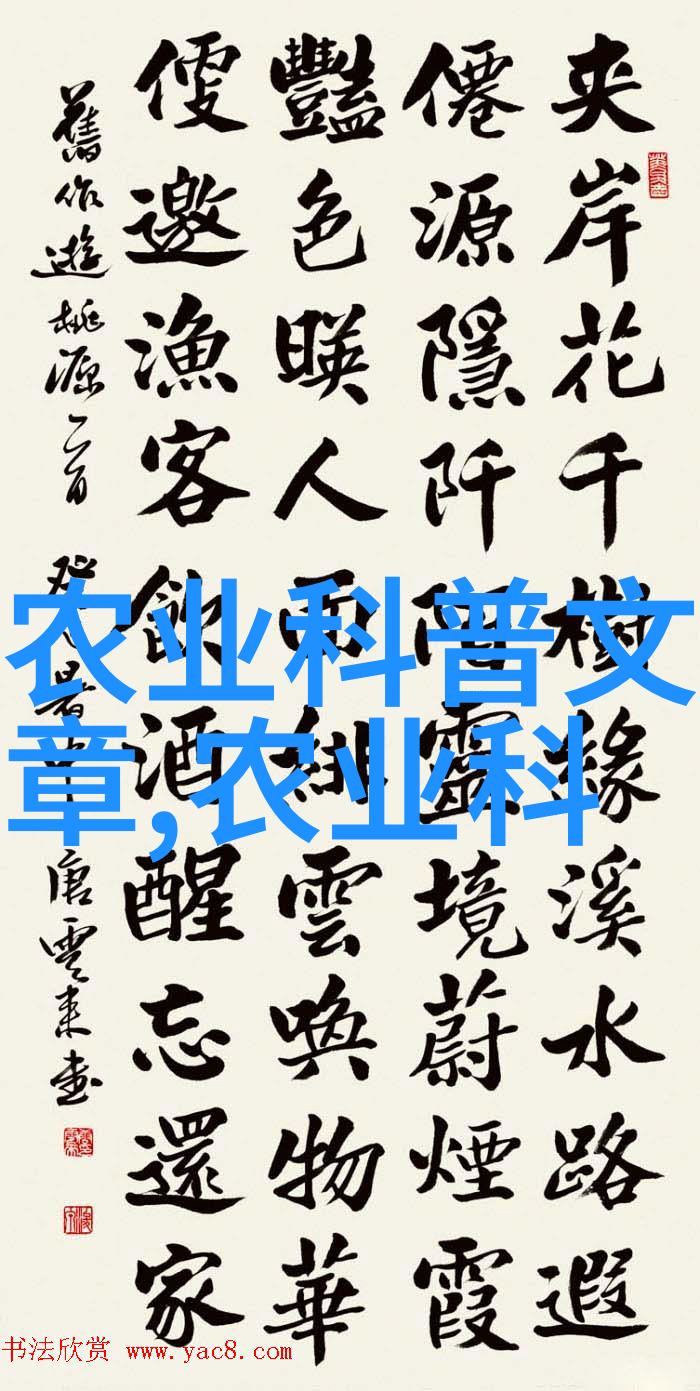 夾岸花千樹緣溪水路遐
僊源隱阡陌靈境蔚煙霞
豔色暎人面緋雲喚物華
便邀漁客飲酒醒忘還家
舊作遊桃源二首 癸暑中 唐雲来書
农业科普文
章,农业科
书法欣赏 www.yac8.com